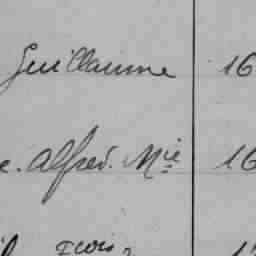 Guillaume 16
e. Alfred. Mie 16
Fcois